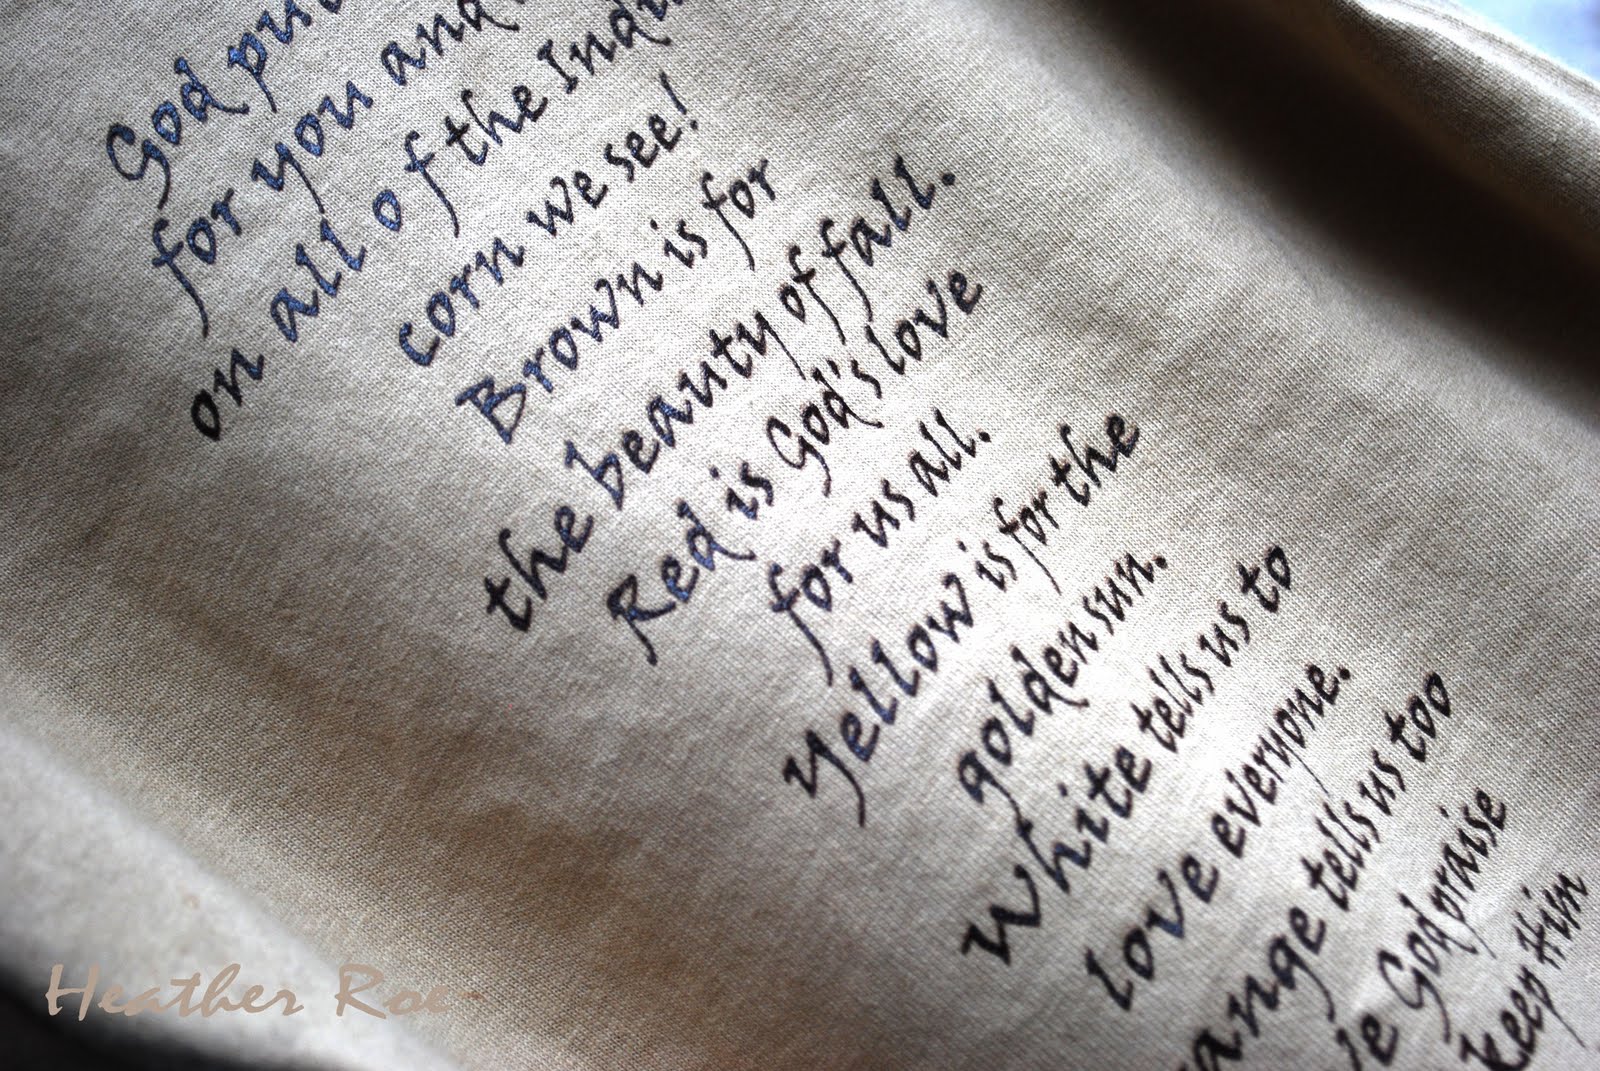 God pu
for you and
on all of the Ind
corn we see!
Brown is for
the beauty of fall.
Red is God's love
for us all.
Yellow is for the
golden sun.
White tells us to
love everyone.
ange tells us too
e God praise
keep Him
Heather Roe